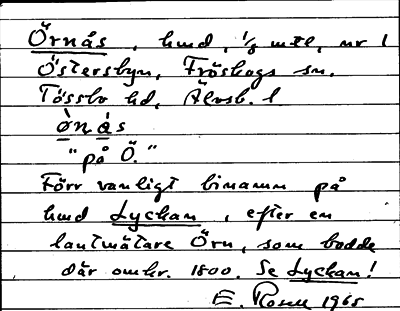 Örnås, hmd, 1/8 mtl, nr 1
Östersbyn, Fröskogs sn.
Tössbo hd, Älvsb. l
ønås
"på Ö."
Förr vanligt binamn på
hmd Lyckan, efter en
lantmätare Örn, som bodde
där omkr. 1800. Se Lyckan!
E. Rosell 1965